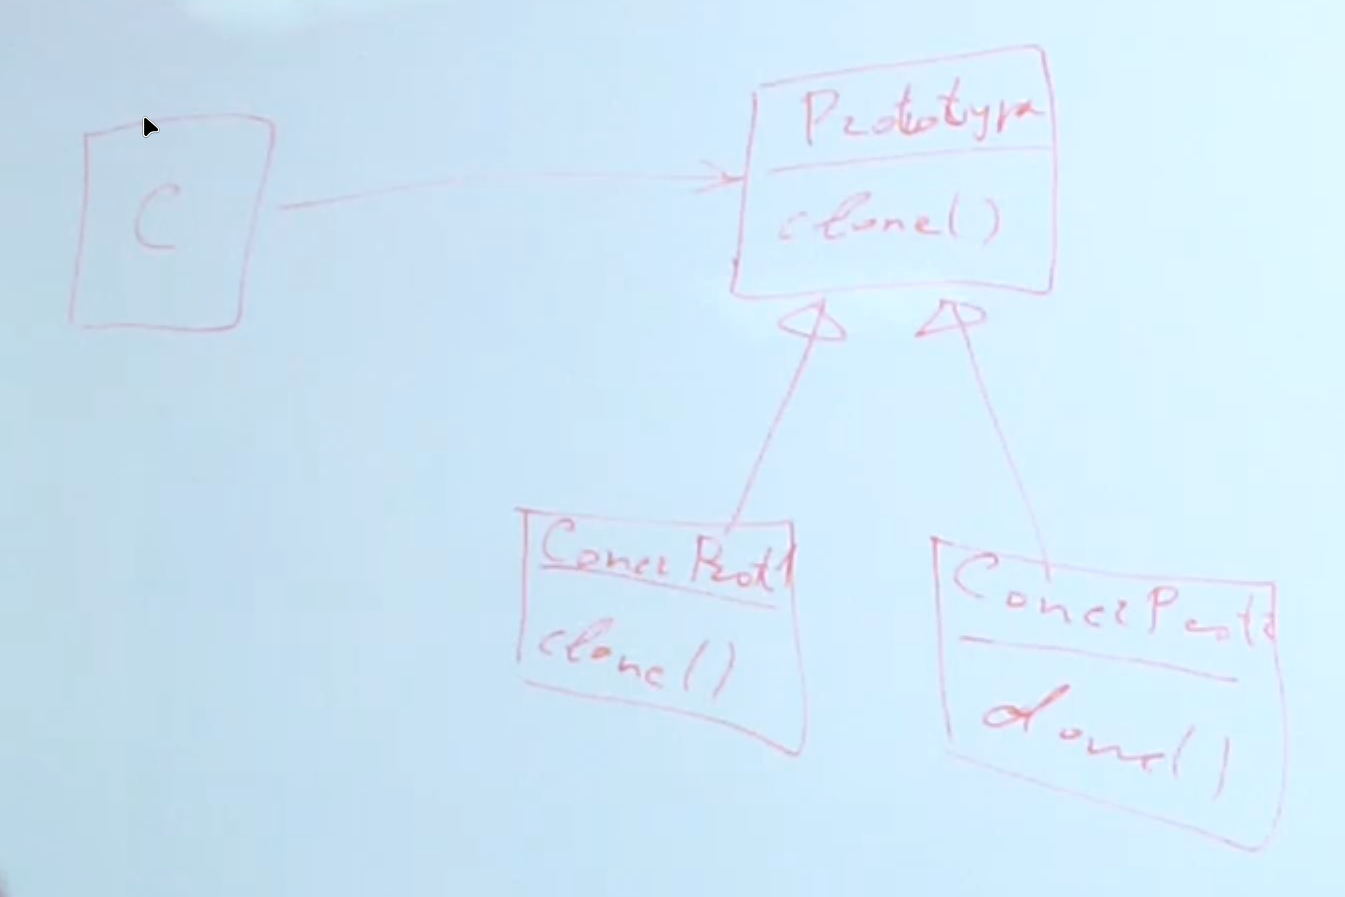 C
Prototype
clone()
Concr Prot1
clone()
Concr Prot2
clone()